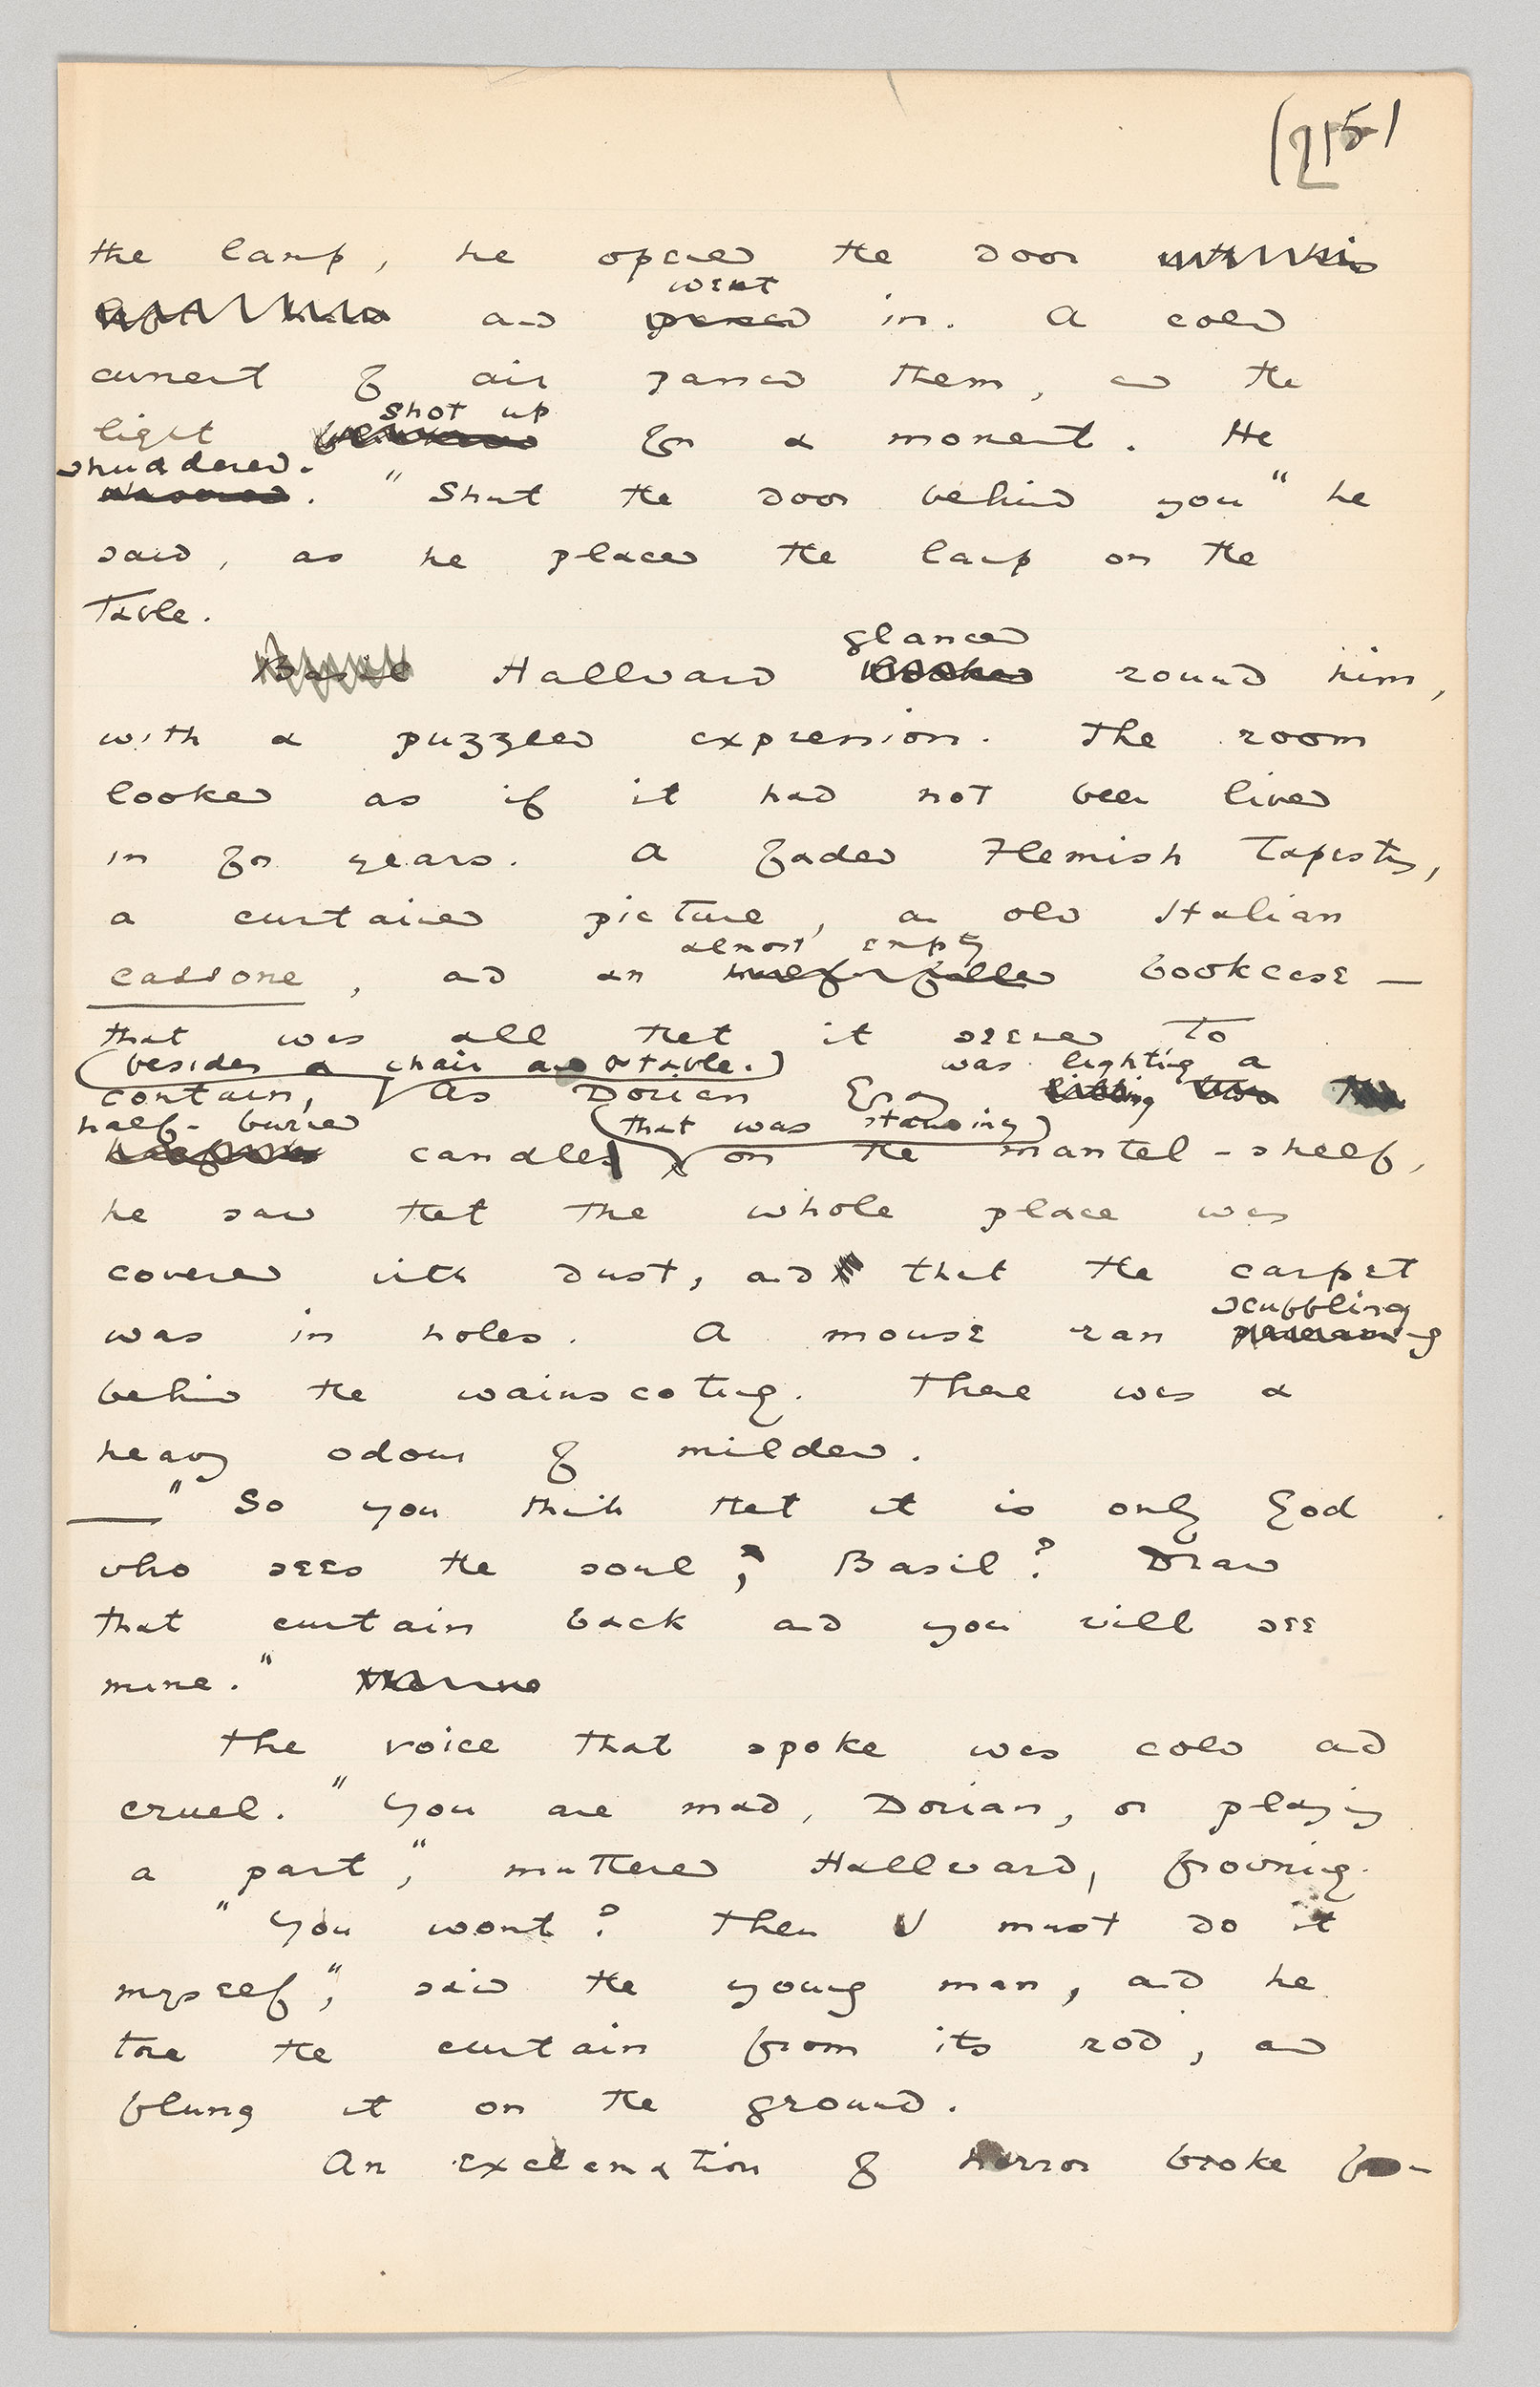 (215)
the lamp, he opened the door with his
left hand and went
passed in. A cold
current of air passed them, and the
light shot up for a moment. He
shuddered.
"Shut the door behind you" he
said, as he placed the lamp on the
table.
glanced
Basil Hallward looked round him,
with a puzzled expression. The room
looked as if it had not been lived
in for years. A faded Flemish tapestry,
a curtained picture, an old Italian
almost empty
cassone, and an half-filled bookcase —
that was all that it seemed to
(besides a chair and a table.) was lighting a
contain, As Dorian Gray
half-burned (that was standing)
candle on the mantel-shelf,
he saw that the whole place was
covered with dust, and that the carpet
scuffling
was in holes. A mouse ran
behind the wainscoting. There was a
heavy odour of mildew.
"So you think that it is only God
who sees the soul, Basil? Draw
that curtain back and you will see
mine."
The voice that spoke was cold and
cruel. "You are mad, Dorian, or playing
a part," muttered Hallward, frowning.
"You wont? Then I must do it
myself," said the young man, and he
tore the curtain from its rod, and
flung it on the ground.
An exclamation of horror broke from